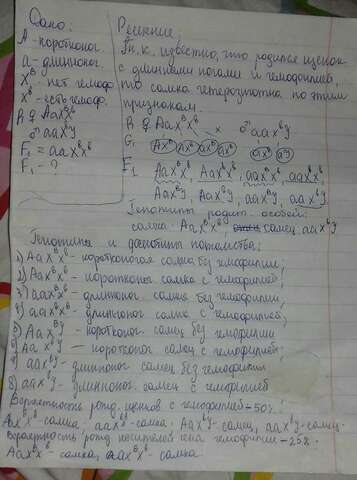 Дано:
А - коротконог.
а - длинноног.
Xᴮ - нет гемоф.
Xᵇ - есть гемоф.
P: ♀ АаXᴮXᵇ
♂ ааXᵇУ
F₁ = ааXᵇXᵇ
F₁ - ?
Решение:
Т.к. известно, что родился щенок
с длинными ногами и гемофилией,
то самка гетерозиготна по этим
признакам.
P: ♀ АаXᴮXᵇ × ♂ ааXᵇУ
G: АXᴮ АXᵇ аXᴮ аXᵇ аXᵇ аУ
F₁ АаXᴮXᵇ, АаXᵇXᵇ, ааXᴮXᵇ, ааXᵇXᵇ
АаXᴮУ, АаXᵇУ, ааXᴮУ, ааXᵇУ
Генотипы родит. особей:
самка - АаXᴮXᵇ самец ааXᵇУ
Генотипы и фенотипы потомства:
1) АаXᴮXᵇ - коротконогая самка без гемофилии;
2) АаXᵇXᵇ - коротконог. самка с гемофилией;
3) ааXᴮXᵇ - длинноног. самка без гемофилии;
4) ааXᵇXᵇ - длинноног. самка с гемофилией;
5) АаXᴮУ - коротконог. самец без гемофилии
6) АаXᵇУ - коротконог. самец с гемофилией;
7) ааXᴮУ - длинноног. самец без гемофилии
8) ааXᵇУ - длинноног. самец с гемофилией
Вероятность рожд. щенков с гемофилией - 50%:
АаXᵇXᵇ - самка; ааXᵇXᵇ - самка; АаXᵇУ - самец, ааXᵇУ - самец.
Вероятность рожд. носителей гена гемофилии - 25%.
АаXᴮXᵇ - самка, ааXᴮXᵇ самка.